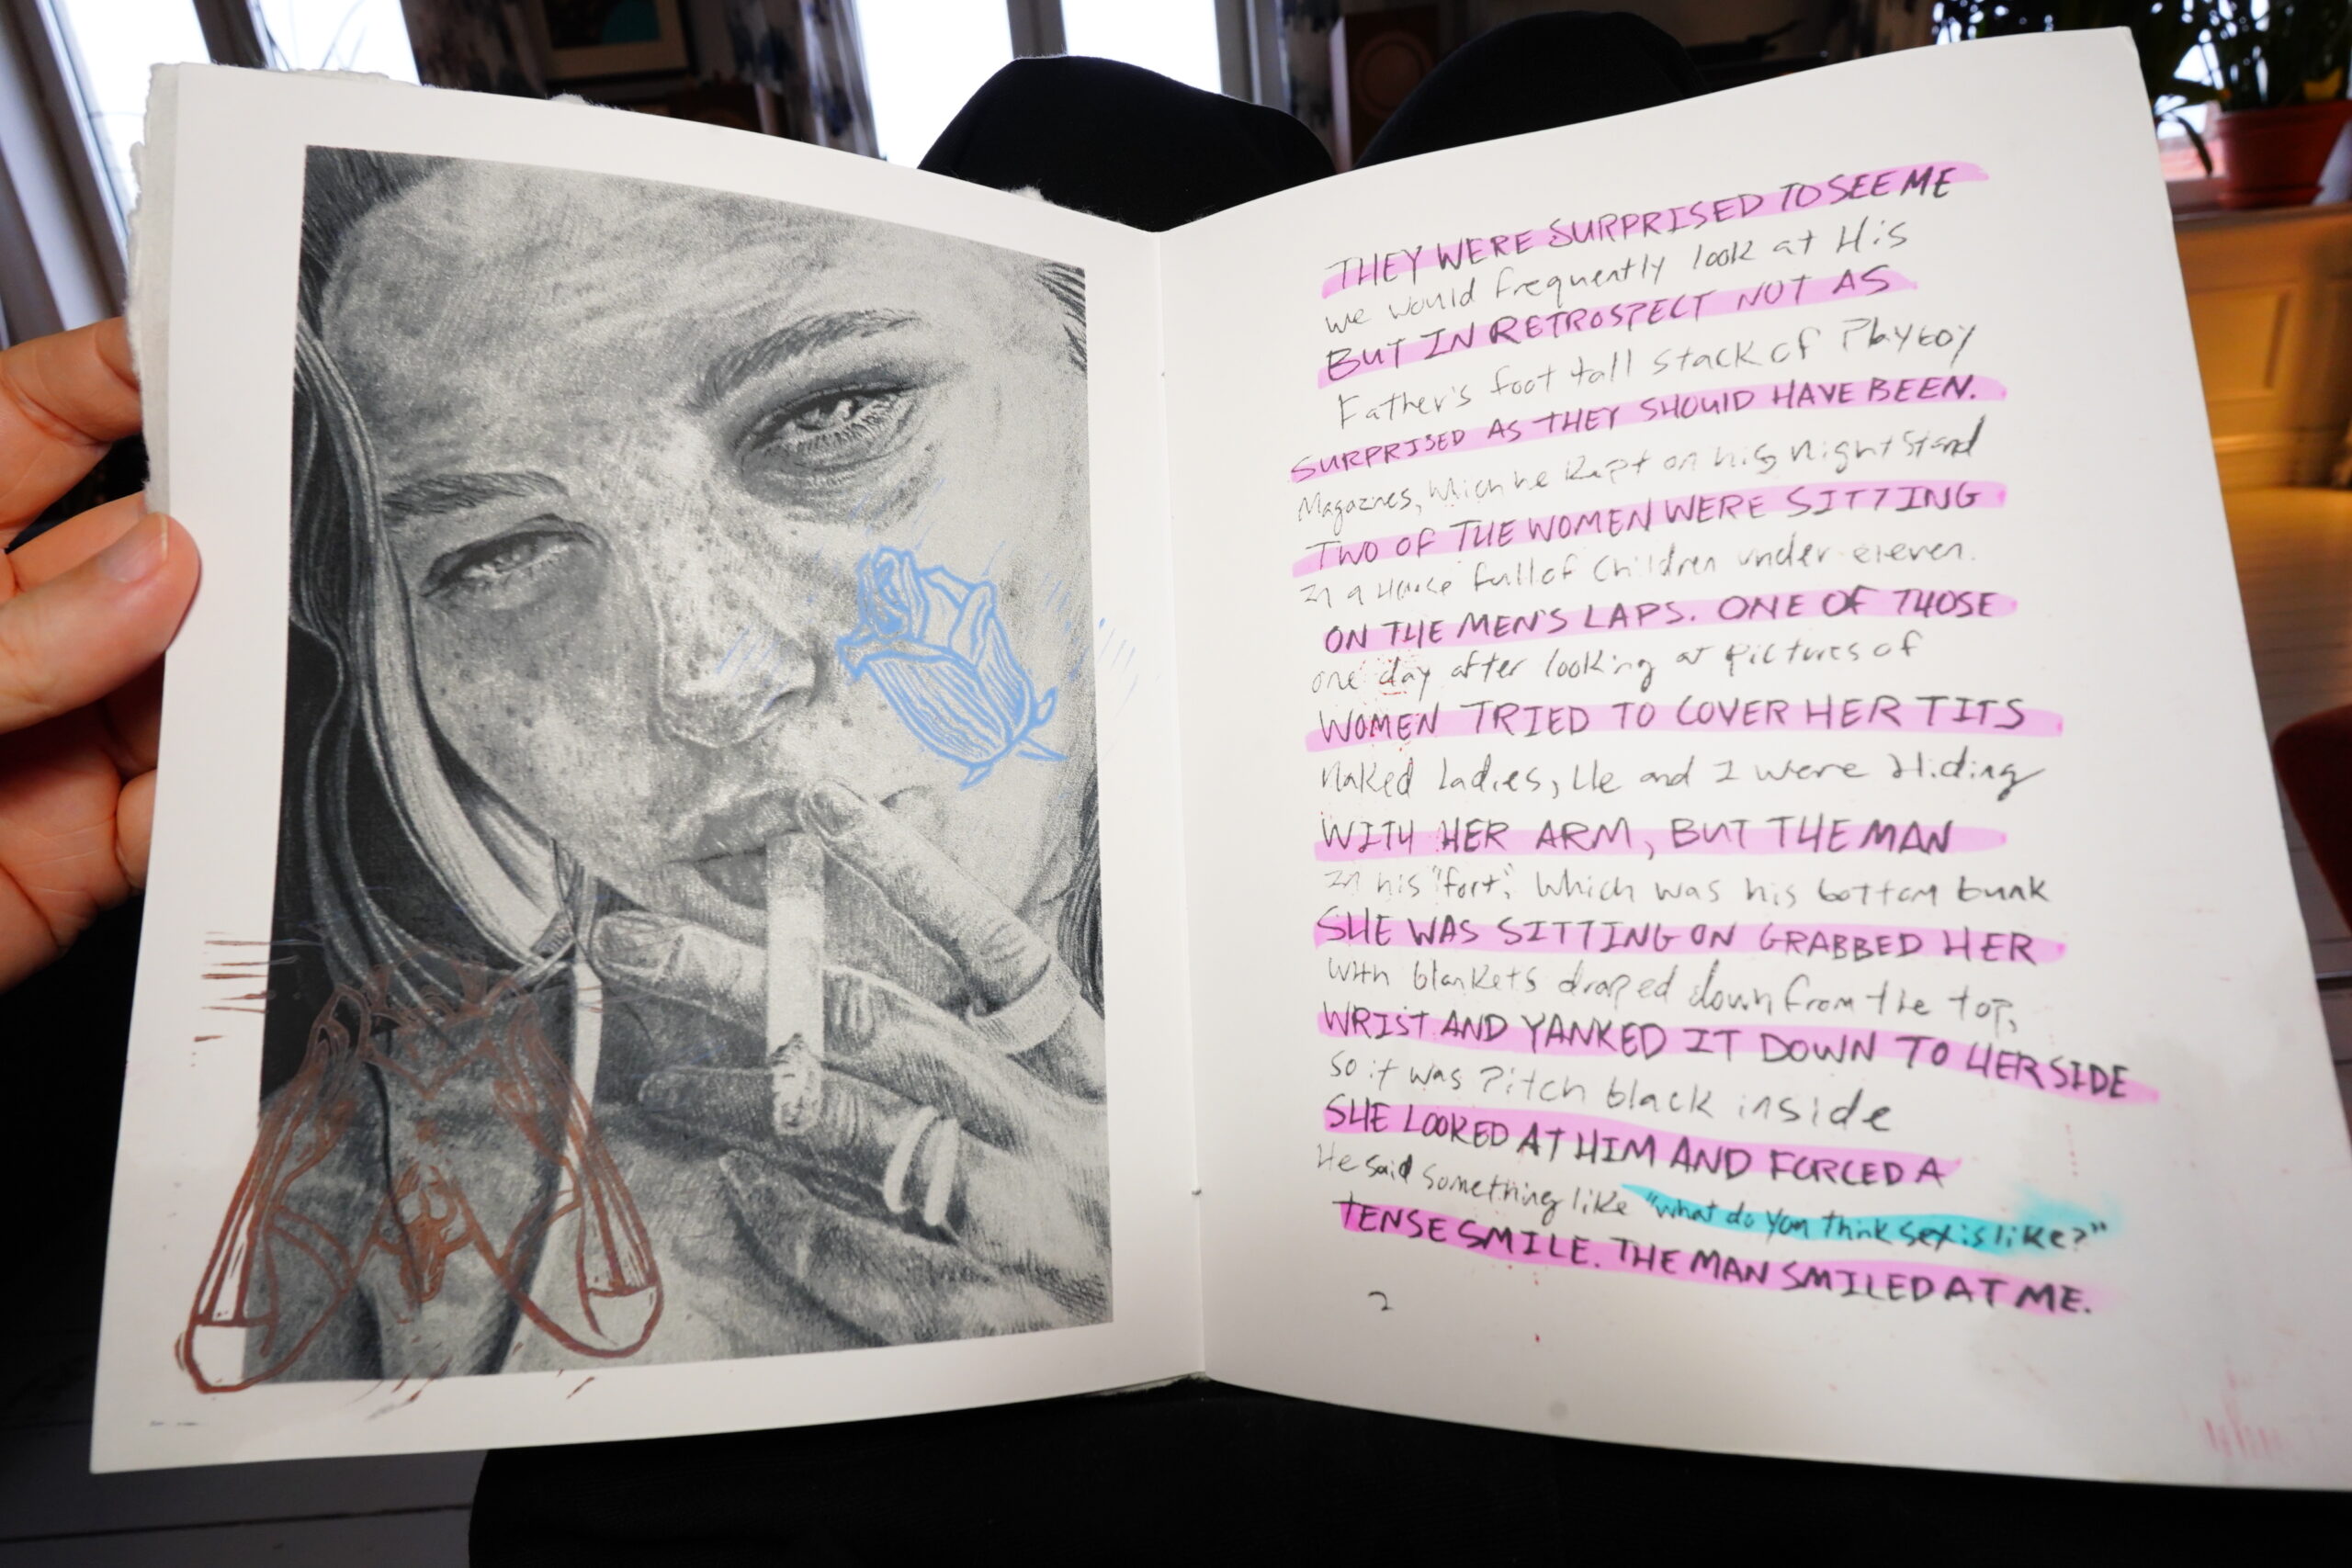 THEY WERE SURPRISED TO SEE ME
we would frequently look at His
BUT IN RETROSPECT NOT AS
Father's foot tall stack of Playboy
SURPRISED AS THEY SHOULD HAVE BEEN.
Magazines, which he kept on his night stand
TWO OF THE WOMEN WERE SITTING
In a House full of Children under eleven.
ON THE MEN'S LAPS. ONE OF THOSE
one day after looking at pictures of
WOMEN TRIED TO COVER HER TITS
naked ladies, He and I were Hiding
WITH HER ARM, BUT THE MAN
In his "fort", Which was his bottom bunk
SHE WAS SITTING ON GRABBED HER
with blankets draped down from the top,
WRIST AND YANKED IT DOWN TO HER SIDE
so it was Pitch black inside
SHE LOOKED AT HIM AND FORCED A
He said something like "what do you think sex is like?"
TENSE SMILE. THE MAN SMILED AT ME.
2